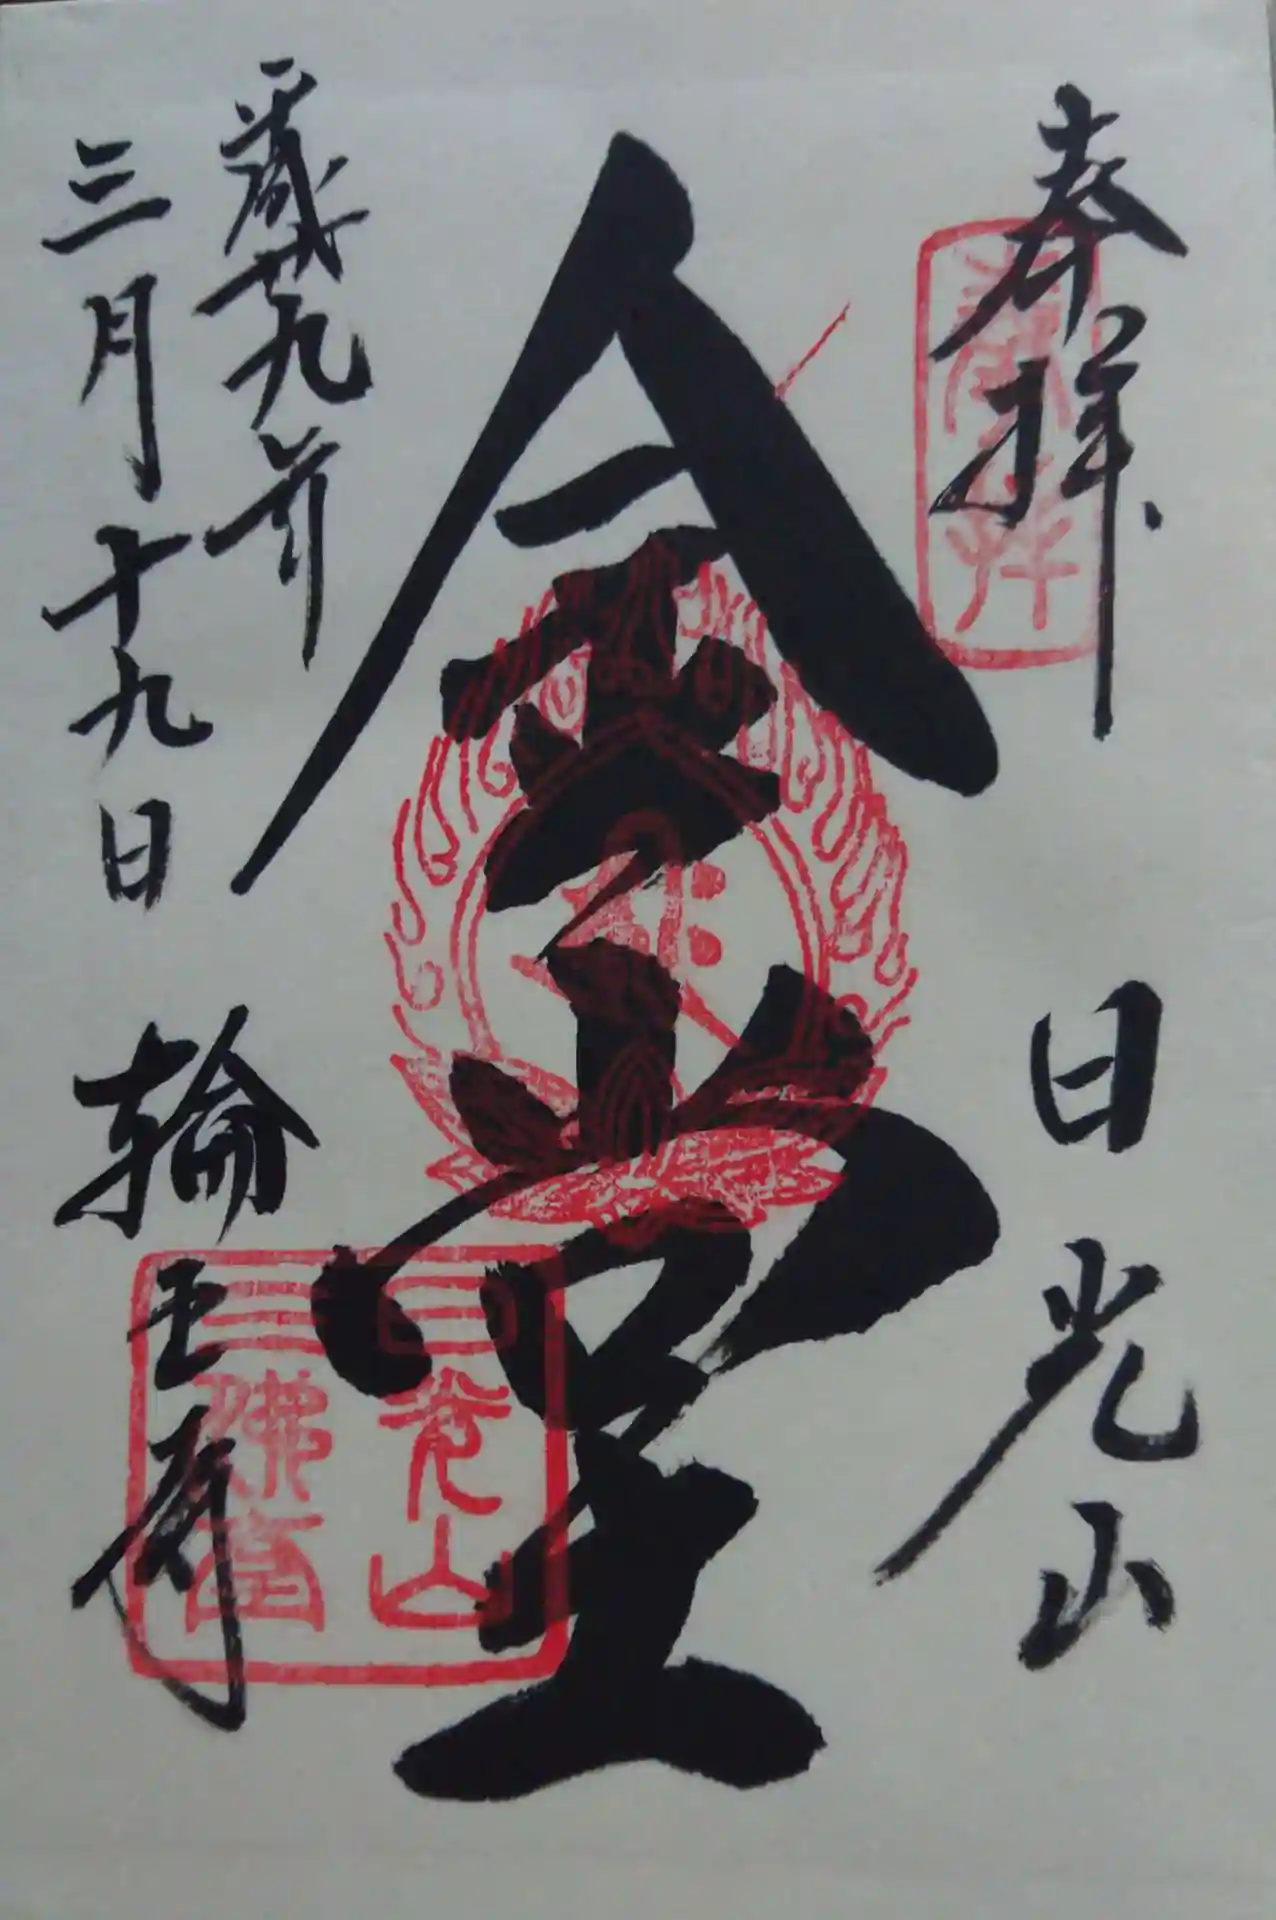 奉拝 日光山
金堂
平成廿九年
三月十九日 輪王寺
日光山
三佛堂